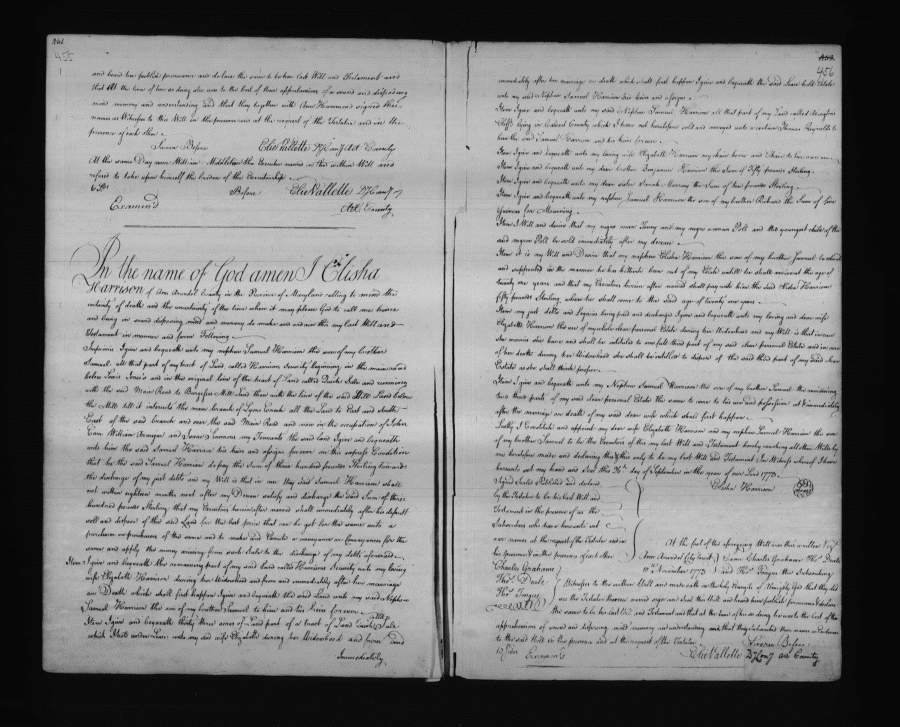 361
455
and heard him publish pronounce and declare the same to be his last Will and Testament and
that at the time of his so doing he was to the best of their apprehensions of a sound and disposing
mind memory and understanding and that they together with Ann Hammond signed their
names as Witnesses to this Will in the presence and at the request of the Testator and in the
presence of each other.
Sworn Before Elie Vallette County
At the same Day came William Middleton the Executor named in the within Will and
refused to take upon himself the burden of the Executorship
Before Elie Vallette
Examin'd County
In the name of God amen I Elisha
Harrison of Ann Arundel County in the Province of Maryland calling to mind the
certainty of death and the uncertainty of the time when it may please God to call me hence
and being in sound disposing mind and memory do make and ordain this my last Will and
Testament in manner and form Following
Imprimis I give and bequeath unto my nephew Samuel Harrison the son of my brother
Samuel all that part of my tract of Land called Harrison Security beginning in the main road
below Lewis and in the original line of the tract of Land called and running
with the said Main Road to Mill and then with the line of the said Mill Land below
the Mill till it intersects the main branch of Lyons Creek all the Land to East and South
East of the said branch and over the said Main Road and now in the occupation of John
William and my Tenants the said land I give and bequeath
unto him the said Samuel Harrison his heirs and assigns forever on this express Condition
that he the said Samuel Harrison do pay the Sum of three hundred pounds Sterling towards
the discharge of my just debts and my Will is that in case they said Samuel Harrison shall
not within eighteen months next after my Decease satisfy and discharge the said Sum of three
hundred pounds Sterling that my Executors herein after named shall immediately after his default
sell and dispose of the said Land for the best price that can be got for the same unto a
purchaser or purchasers of the same and to make deed or conveyance or Conveyances for the
same and apply the money arising from such Sales to the discharge of my debts aforesaid
Item I give and bequeath the remaining part of my said Land called Harrisons Security unto my loving
wife Elizabeth Harrison during her Widowhood and from and immediately after her marriage
or Death which shall first happen I give and bequeath the said Land unto my said Nephew
Samuel Harrison the son of my brother Samuel to him and his Heirs forever
Item I give and bequeath thirty three acres of Land part of a tract of Land called
which I hold under Lease unto my said wife Elizabeth during her Widowhood and from and
Immediately
456
immediately after her marriage or death which shall first happen I give and bequeath the said Lease hold Estate
unto my said Nephew Samuel Harrison his heirs and assigns
Item I give and bequeath unto my said Nephew Samuel Harrison all that part of my Land called
Cliffs lying in Calvert County which I have not heretofore sold and conveyed unto a certain Thomas Reynolds to
him the said Samuel Harrison and his heirs forever
Item I give and bequeath unto my loving wife Elizabeth Harrison my chair horse and Chair to her own use
Item I give and bequeath unto my dear brother Benjamin Harrison the Sum of Fifty pounds Sterling
Item I give and bequeath unto my dear sister Sarah Murray the Sum of ten pounds Sterling
Item I give and bequeath unto my nephew Samuel Harrison the son of my brother Richard the Sum of two
Guineas for Mourning
Item I Will and desire that my negro man and my negro woman Poll and the youngest child of the
said negroe Poll be sold immediately after my decease
Item it is my Will and Desire that my nephew Elisha Harrison the son of my brother Samuel be
and supported in the manner he has hitherto been out of my Estate untill he shall arrive at the age of
twenty one years and that my Executors herein after named shall pay unto him the said Elisha Harrison
fifty pounds Sterling when he shall come to the said age of twenty one years
Item my just debts and Legacies being paid and discharged I give and bequeath unto my loving and dear wife
Elizabeth Harrison the use of my whole clear personal Estate during her Widowhood and my Will is that in case
she marries she have and shall be intitled to one full third part of my said clear personal Estate and in case
of her death during her Widowhood she shall be at liberty to dispose of the said third part of my said clear
Estate as she shall think proper
Item I give and bequeath unto my Nephew Samuel Harrison the son of my brother Samuel the remaining
two thirds parts of my said clear personal Estate the same to come to his use and possession immediately
after the marriage or death of my said dear wife which shall first happen
Lastly I Constitute and appoint my dear wife Elizabeth Harrison and my nephew Samuel Harrison the son
of my brother Samuel to be the Executors of this my last Will and Testament hereby revoking all other Wills by
me heretofore made and declaring this and this only to be my last Will and Testament In Witness whereof I have
hereunto set my hand and Seal the 26th day of September in the year of our Lord 1773
Signed Sealed Published and declared Elisha Harrison Seal
by the Testator to be his last Will and
Testament in the presence of us the
Subscribers who have hereunto set
our names at the request of the Testator and in
his presence & in the presence of each other
Charles Grahame
Thos. Deale
Thos. Tongue
At the foot of the aforegoing Will was thus written Viz.
Ann Arundel County Came Charles Grahame Thos. Deale
November 1773 and Thos. Tongue the Subscribing
Witnesses to the within Will and made oath on the Holy Evangels of Almighty God that they did
see the Testator Harrison named sign and Seal this Will and heard him publish pronounce & declare
the same to be his last Will and Testament and that at the time of his so doing he was to the best of their
apprehensions of sound and disposing mind memory and understanding and that they subscribed their names as Witnesses
to the said Will in the presence and at the request of the Testator.
Sworn Before
Examin'd Elie Vallette County